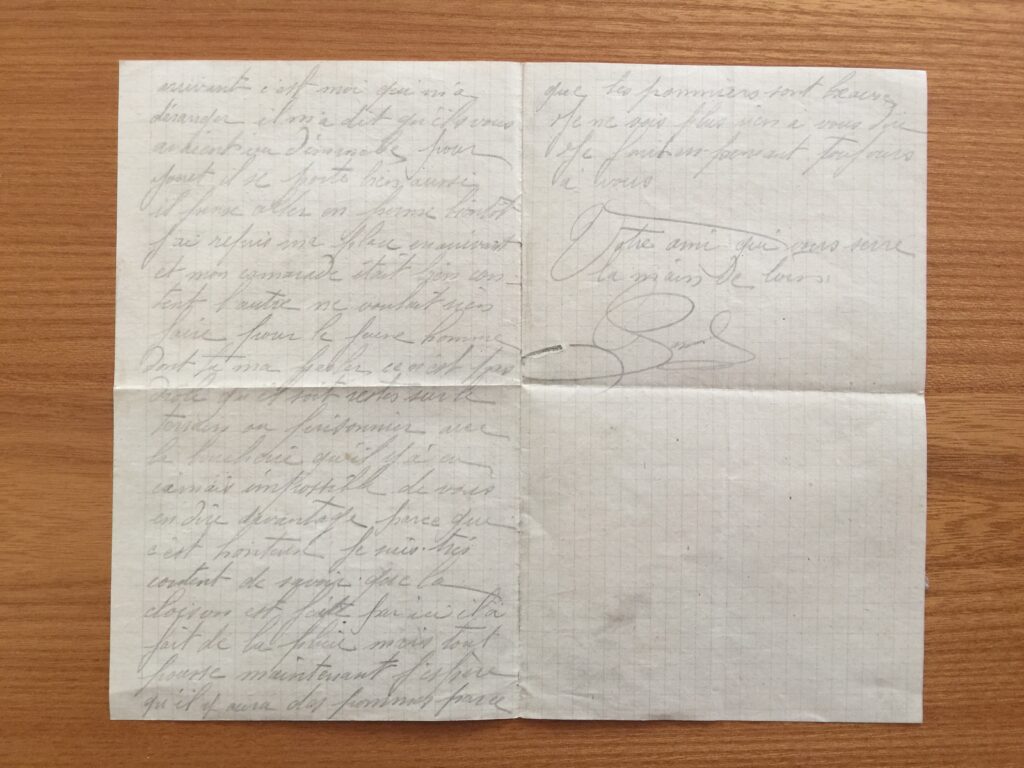 arrivant c'est moi qui m'a
déranger il m'a dit qu'ils vous
avaient vu Dimanche pour
il se porte bien aussi
il pense aller en perme bientôt
j'ai repris ma place en arrivant
et mon camarade était bien con-
tent l'autre ne voulait rien
faire pour le jeune homme
dont tu ma parler ce n'est pas
drole qu'il soit restes sur le
terrain ou prisonnier avec
la boucherie qu'il y a eu
jamais impossible de vous
en dire davantage parce que
c'est honteux Je suis très
content de savoir que la
cloison est faite par ici il à
fait de la pluie mais tout
pousse maintenant j'espère
qu'il y aura des pommes parce
que les pommiers sont beaux
Je ne vois plus rien a vous dire
Je finis en pensant toujours
à vous
Votre ami qui vous serre
la main De loin